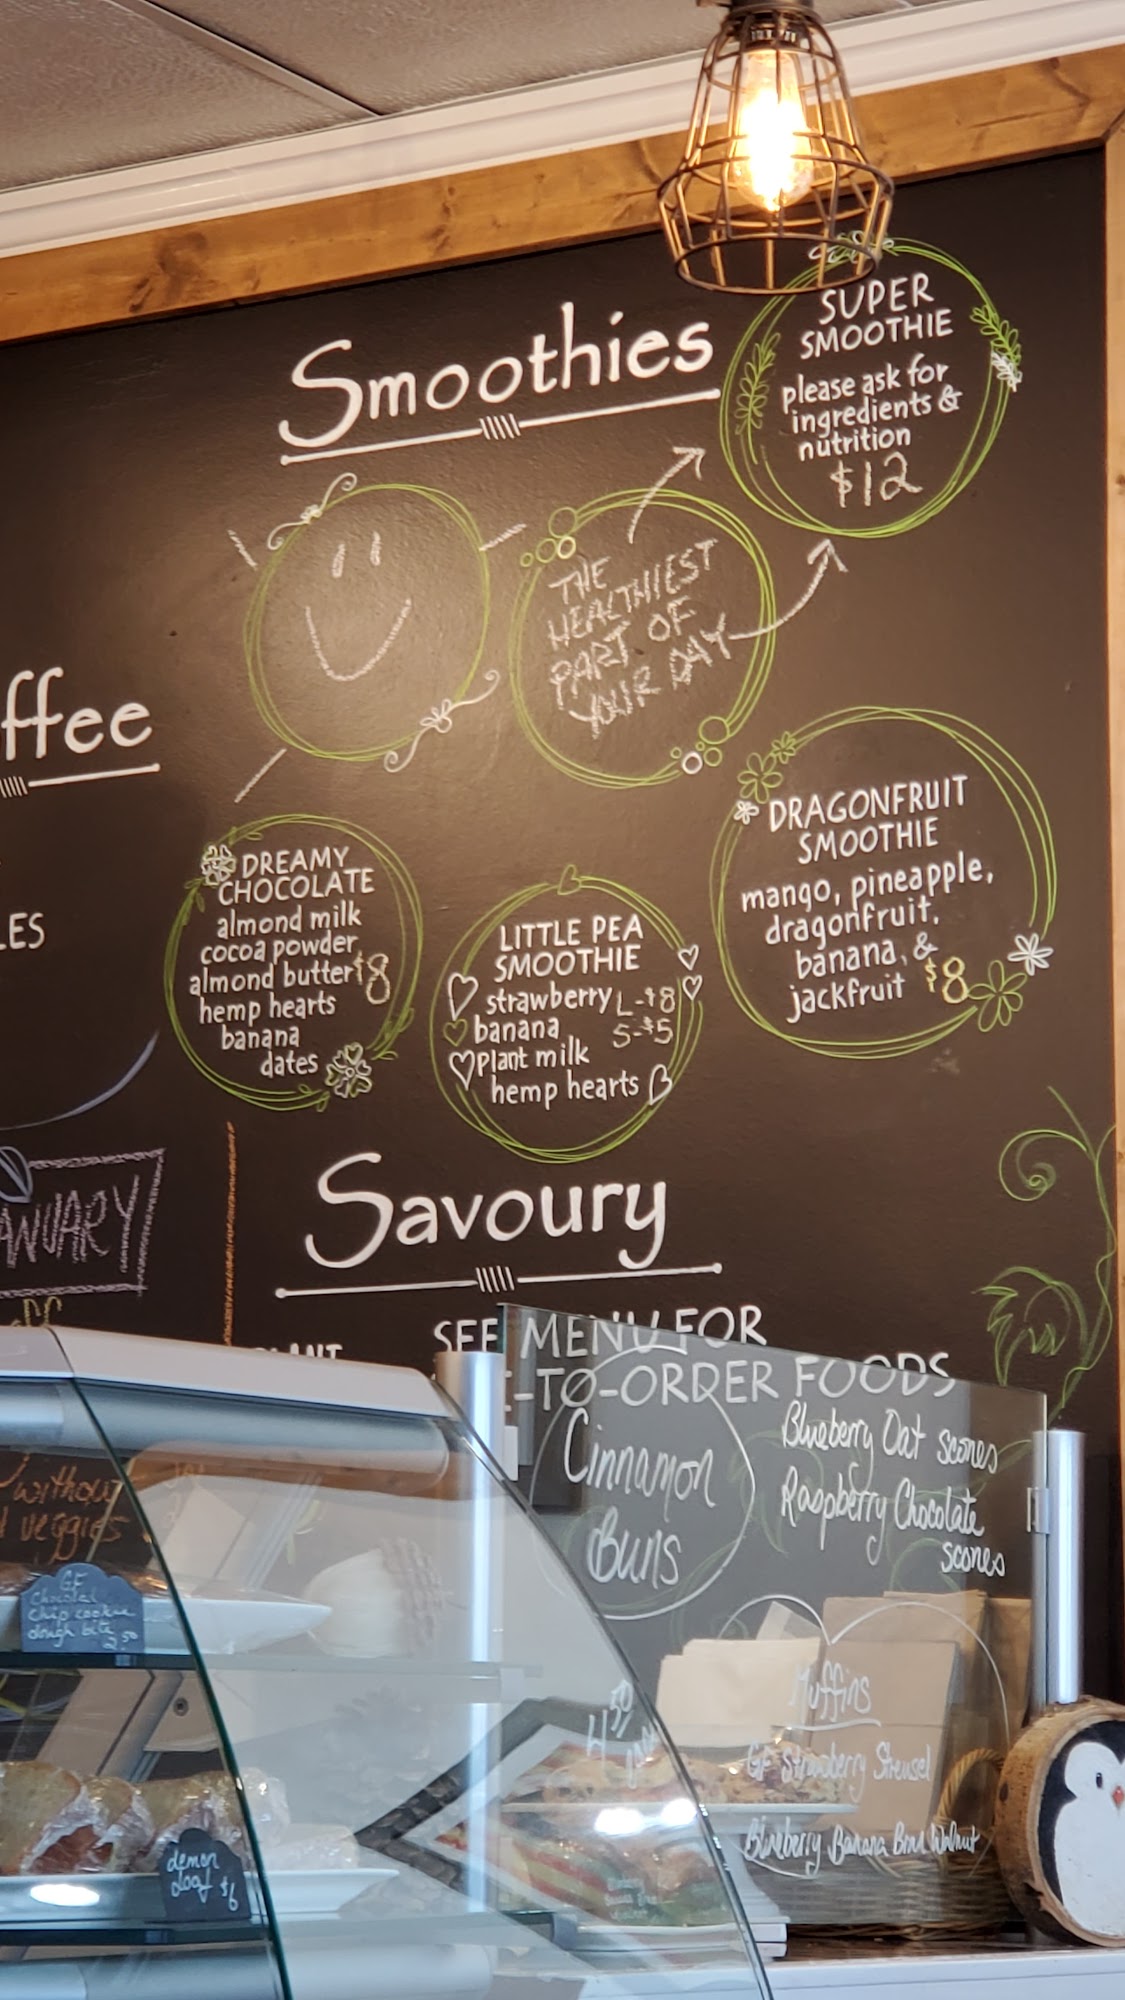 Smoothies
SUPER
SMOOTHIE
please ask for
ingredients &
nutrition
$12
THE
HEALTHIEST
PART OF
YOUR DAY
ffee
LES
DREAMY
CHOCOLATE
almond milk
cocoa powder
almond butter $8
hemp hearts
banana
dates
LITTLE PEA
SMOOTHIE
strawberry L-$8
banana S-$5
Plant milk
hemp hearts
DRAGONFRUIT
SMOOTHIE
mango, pineapple,
dragonfruit,
banana, &
jackfruit $8
ANUARY
Savoury
SEE MENU FOR
-TO-ORDER FOODS
Cinnamon
Buns
Blueberry Oat scones
Raspberry Chocolate
scones
Muffins
GF Strawberry Streusel
Blueberry Banana Bran Walnut
without
veggies
GF
chip cookie
dough bite
2.50
4.50
lemon
loaf $6